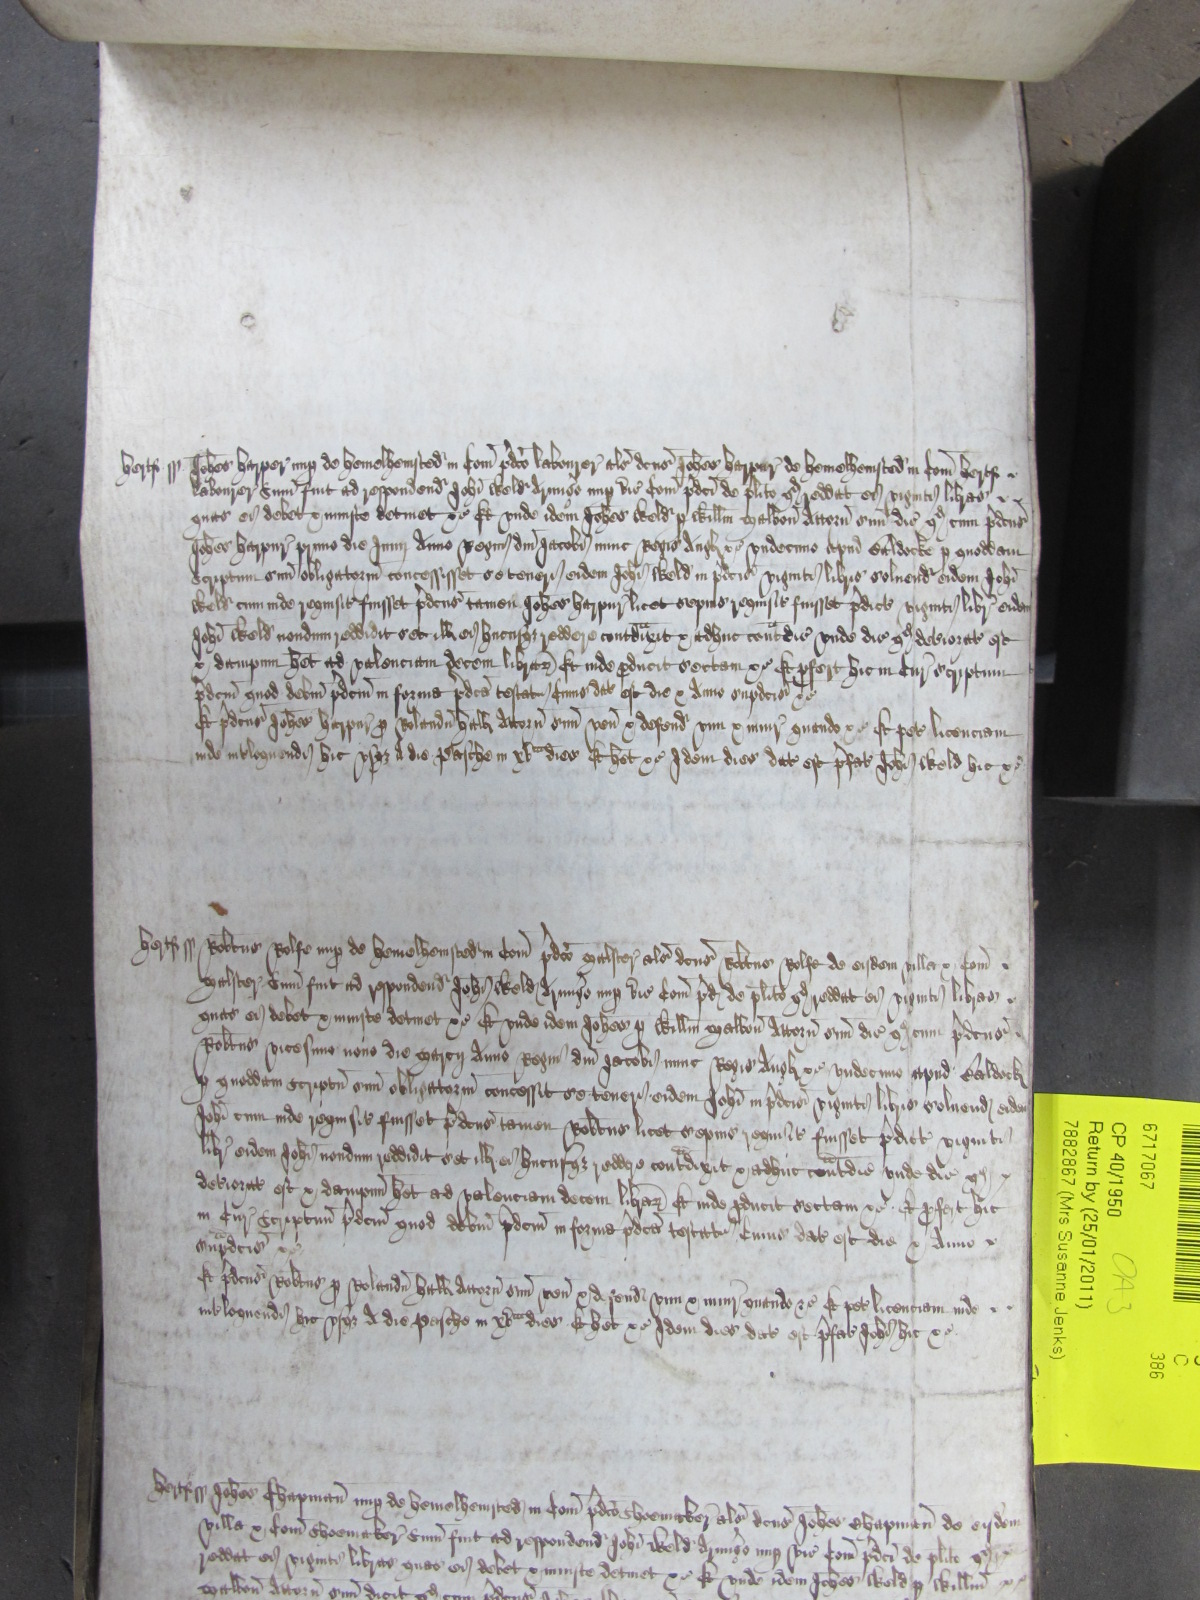 Hertf ss Joh̃es Harper nup de Hemelhemsted in Com̃ p̃dc̃o laborer als̃ dc̃us Joh̃es Harpur de Hemelhemsted in Com̃ Hertf
laborer sum̃ fuit ad respondend̃ Joh̃i Weld Armig̃o nup vic̃ Com̃ p̃dc̃i de pl̃ito qd̃ reddat ei viginti libras
quas ei debet & iniuste detinet &c̃ Et unde idem Joh̃es Weld p Will̃m Malboñ Attorñ suũ dic̃ qd̃ cum p̃dc̃us
Joh̃es Harpur primo die Junii Anno Regni dñi Jacobi nunc Regis Angl̃ &c̃ undecimo apud Baldocke p quoddam
scriptum suũ obligatoriũ concessisset se teneri eidem Joh̃i Weld in p̃dc̃is viginti libris solvend̃ eidem Joh̃i
Weld cum inde requisit̃ fuisset p̃dc̃us tamen Joh̃es Harpur licet sepius requisit̃ fuisset p̃dict̃ viginti libr̃ eidem
Joh̃i Weld nondum reddidit set ill̃ ei hucusqz reddere contradixit & adhuc contradic̃ unde dic̃ qd̃ deteriorat̃ est
& dampnum het̃ ad valenciam decem librar̃ Et inde producit sectam &c̃ Et profert hic in Cur̃ scriptum
p̃dc̃m quod debit̃m p̃dc̃m in forma p̃dc̃a testatur Cuius dat̃ est die & Anno supradc̃is &c̃
Et p̃dc̃us Joh̃es Harpur p Rolandũ Hall̃ Attorñ suũ veñ & defend̃ vim & iniur̃ quando &c̃ Et pet̃ licenciam
inde int̃loquendi hic usqz A die Pasche in xvᶜⁱᵐ dies Et het̃ &c̃ Idem dies dat̃ est p̃fat̃ Joh̃i Weld hic &c̃
Hertf ss Rob̃tus Rolfe nup de Hemelhemsted in Com̃ p̃dc̃o Malster als̃ dc̃us Rob̃tus Rolfe de eisdem villa & Com̃
Malster sum̃ fuit ad respondend̃ Joh̃i Weld Armig̃o nup vic̃ Com̃ p̃d̃ de pl̃ito qd̃ reddat ei viginti libras
quas ei debet & iniuste detinet &c̃ Et unde idem Joh̃es p Will̃m Malboñ Attorñ suũ dic̃ qd̃ cum p̃dc̃us
Rob̃tus vicesimo nono die Marcii Anno Regni dñi Jacobi nunc Regis Angl̃ &c̃ undecimo apud Baldock
p quoddam scriptũ suũ obligatoriũ concessit se teneri eidem Joh̃i in p̃dc̃is viginti libris solvend̃ eidem
Joh̃i cum inde requisit̃ fuisset p̃dc̃us tamen Rob̃tus licet sepius requisit̃ fuisset p̃dict̃ viginti
libr̃ eidem Joh̃i nondum reddidit set ill̃ ei hucusqz reddere contradixit & adhuc contradic̃ unde dic̃ qd̃
deteriorat̃ est & dampnũ het̃ ad valenciam decem librar̃ Et inde producit sectam &c̃ Et profert hic
in Cur̃ scriptum p̃dc̃m quod debit̃m p̃dc̃m in forma p̃dc̃a testatur Cuius dat̃ est die & Anno
supradc̃is &c̃
Et p̃dc̃us Rob̃tus p Rolandũ Hall̃ Attorñ suũ veñ & defend̃ vim & iniur̃ quando &c̃ Et pet̃ licenciam inde
int̃loquendi hic usqz A die Pasche in xvᶜⁱᵐ dies Et het̃ &c̃ Idem dies dat̃ est p̃fat̃ Joh̃i hic &c̃
Hertf ss Joh̃es Chapman̄ nup de Hemelhemsted in Com̃ p̃dc̃o Shoemaker als̃ dc̃us Joh̃es Chapman̄ de eisdem
villa & Com̃ Shoemaker sum̃ fuit ad respondend̃ Joh̃i Weld Armig̃o nup vic̃ Com̃ p̃dc̃i de pl̃ito qd̃
reddat ei viginti libras quas ei debet & iniuste detinet &c̃ Et unde idem Joh̃es Weld p Will̃m
Malboñ Attorñ suũ dicit qd̃ cum p̃dc̃us
6717067
386
C
CP 40/1950
OA3
Return by (25/01/2011)
7882867 (Mrs Susanne Jenks)